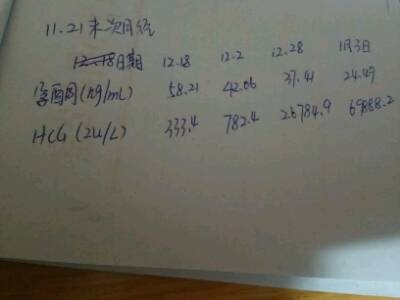 11.21末次月经
12.18日期 12.18 12.2 12.28 1月3日
孕酮(ng/mL) 58.21 42.06 37.41 24.49
HCG(2U/L) 333.4 782.4 26784.9 69888.2